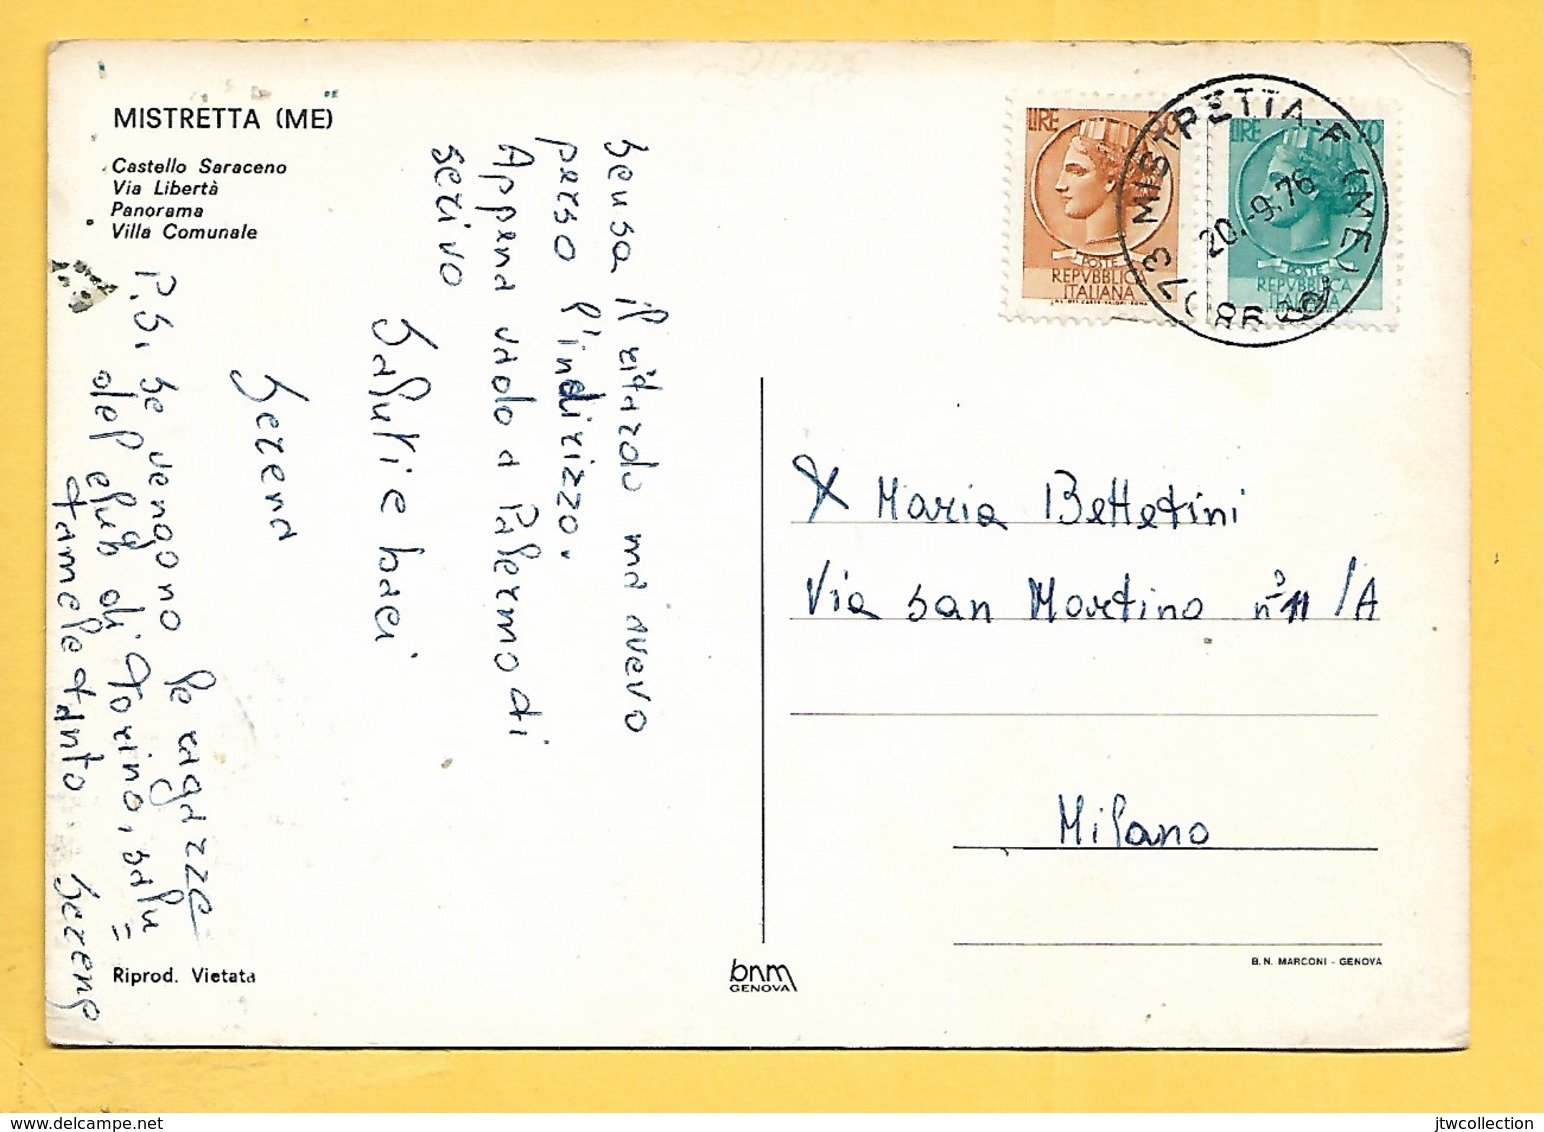 MISTRETTA (ME)
Castello Saraceno
Via Libertà
Panorama
Villa Comunale
Scusa il ritardo ma avevo
perso l'indirizzo.
Appena vado a Palermo di
scrivo
Saluti e baci
Serena
P.S. Se vengono le ragazze
del club di Torino, salu=
tamele tanto Serena
LIRE 20
POSTE
REPVBBLICA
ITALIANA
LIRE 70
POSTE
REPVBBLICA
ITALIANA
MISTRETTA (ME)
20.-9.76
X Maria Bettetini
Via san Martino n° 11 /A
Milano
Riprod. Vietata
bnm
GENOVA
B.N. MARCONI - GENOVA
delcampe.net
jtwcollection